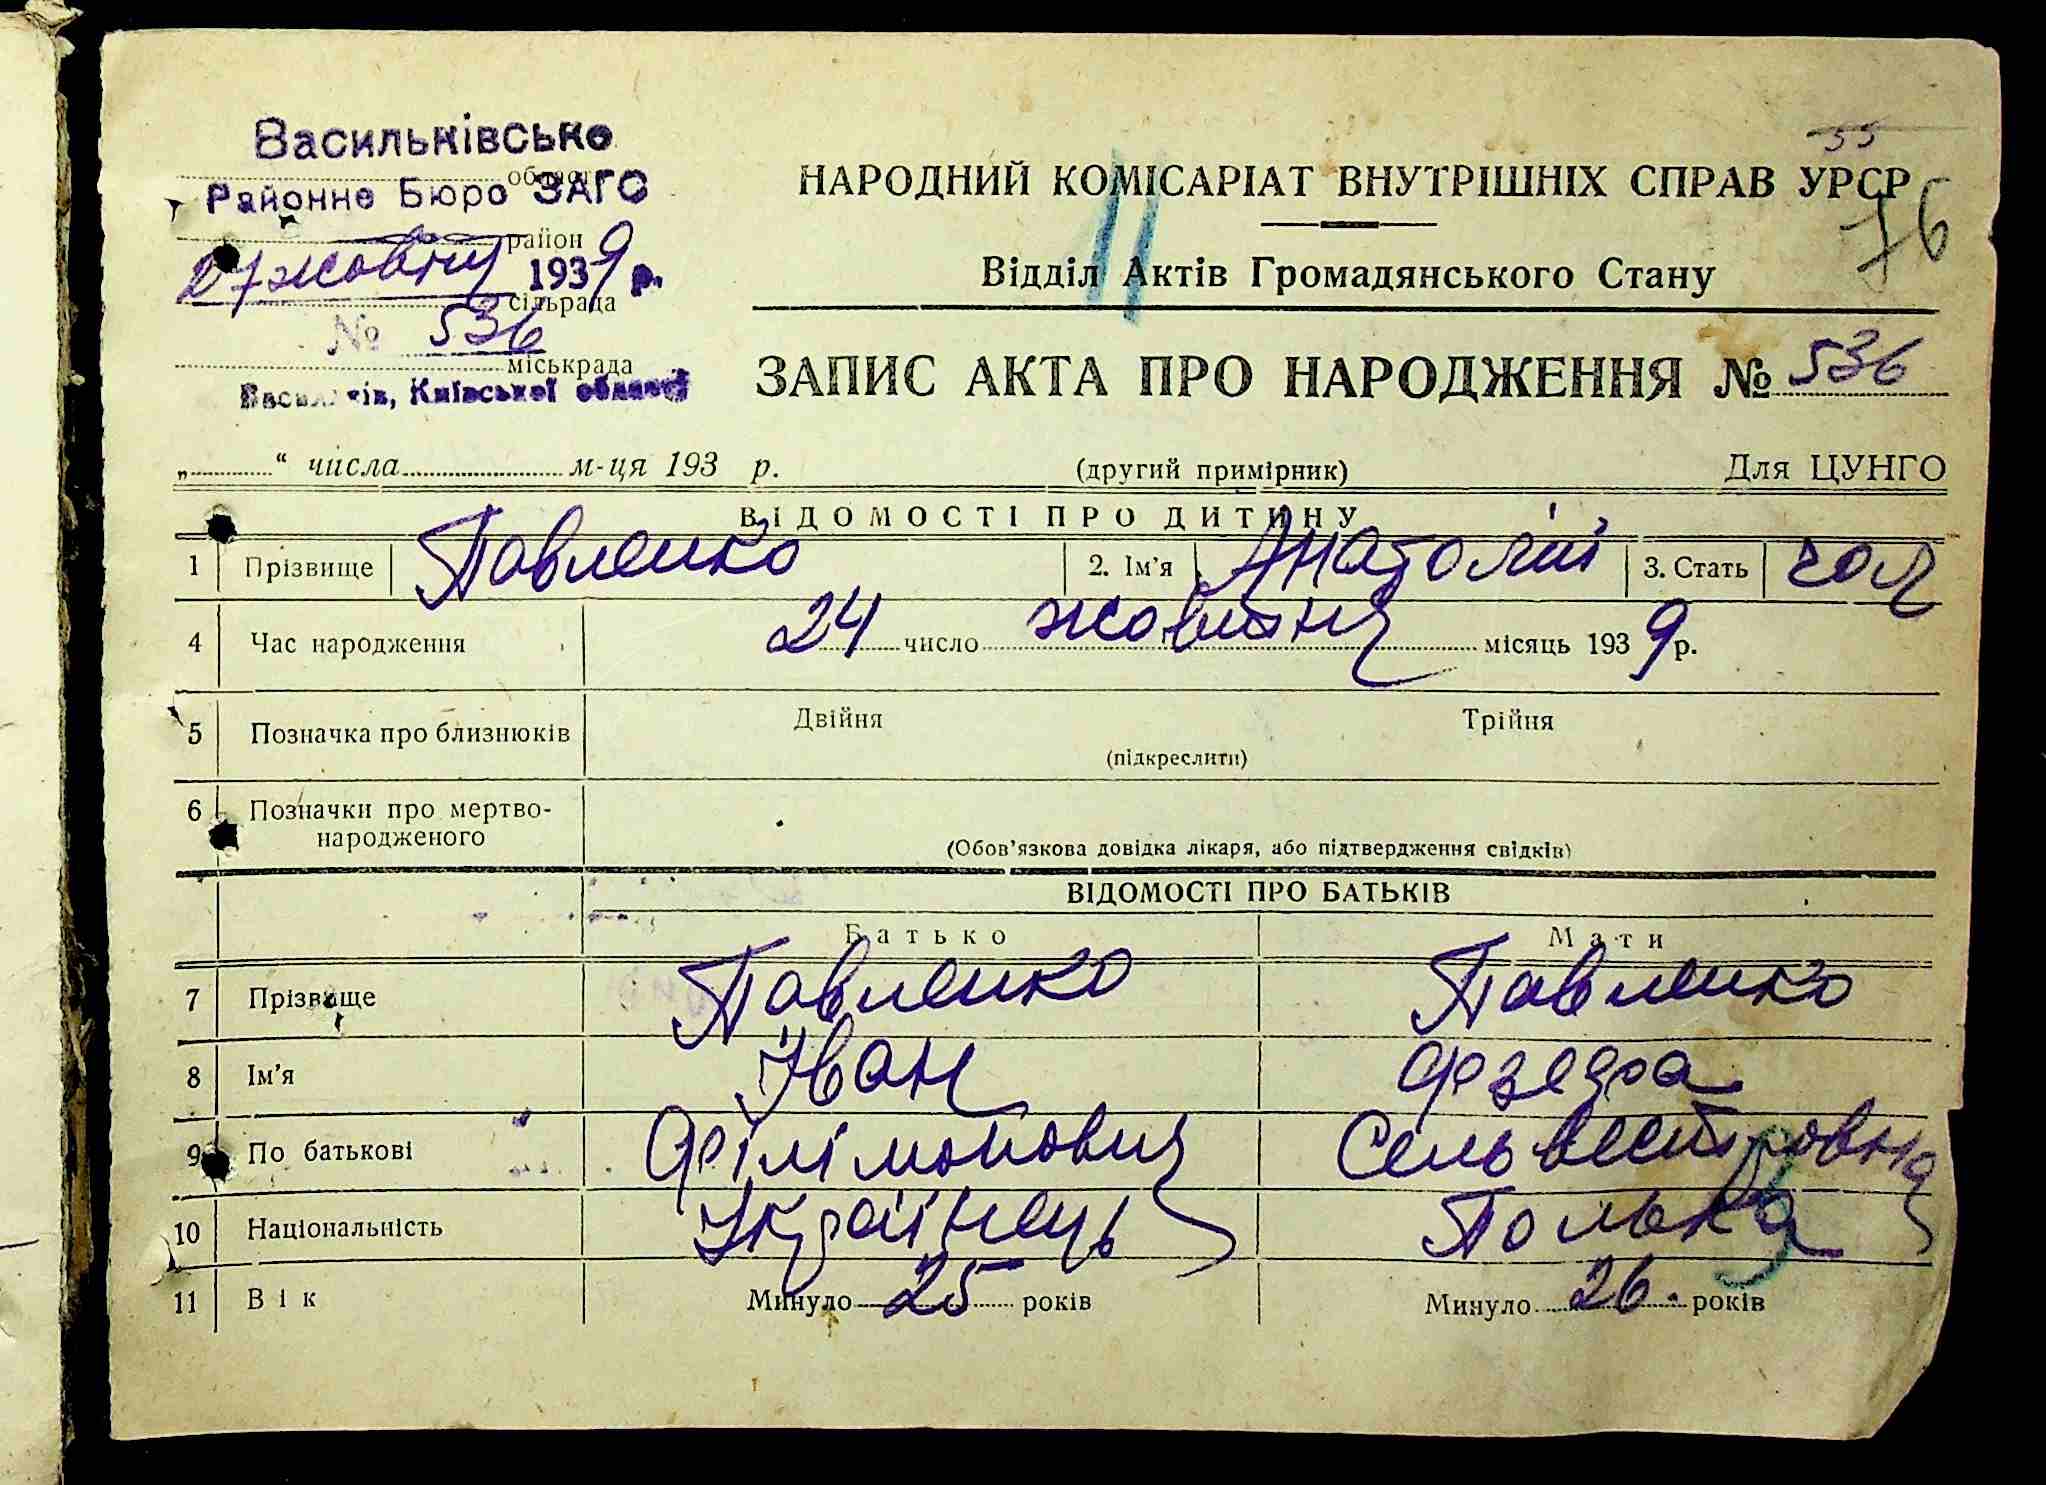 Васильківське
област
Районне Бюро ЗАГС
район
27 жовтня 1939 р.
сільрада
№ 536
міськрада
Васильків, Київської області
55
76
НАРОДНИЙ КОМІСАРІАТ ВНУТРІШНІХ СПРАВ УРСР
Відділ Актів Громадянського Стану
ЗАПИС АКТА ПРО НАРОДЖЕННЯ № 536
„ “ числа м-ця 193 р. (другий примірник) Для ЦУНГО
ВІДОМОСТІ ПРО ДИТИНУ
1 Прізвище Павленко 2. Ім’я Анатолій 3. Стать чол
4 Час народження 24 число жовтня місяць 1939 р.
5 Позначка про близнюків Двійня Трійня
(підкреслити)
6 Позначки про мертво-
народженого
(Обов’язкова довідка лікаря, або підтвердження свідків)
ВІДОМОСТІ ПРО БАТЬКІВ
Батько Мати
7 Прізвище Павленко Павленко
8 Ім’я Іван
9 По батькові Філімонович Сельвестровна
10 Національність Українець Полька
11 Вік Минуло 25 років Минуло 26. років